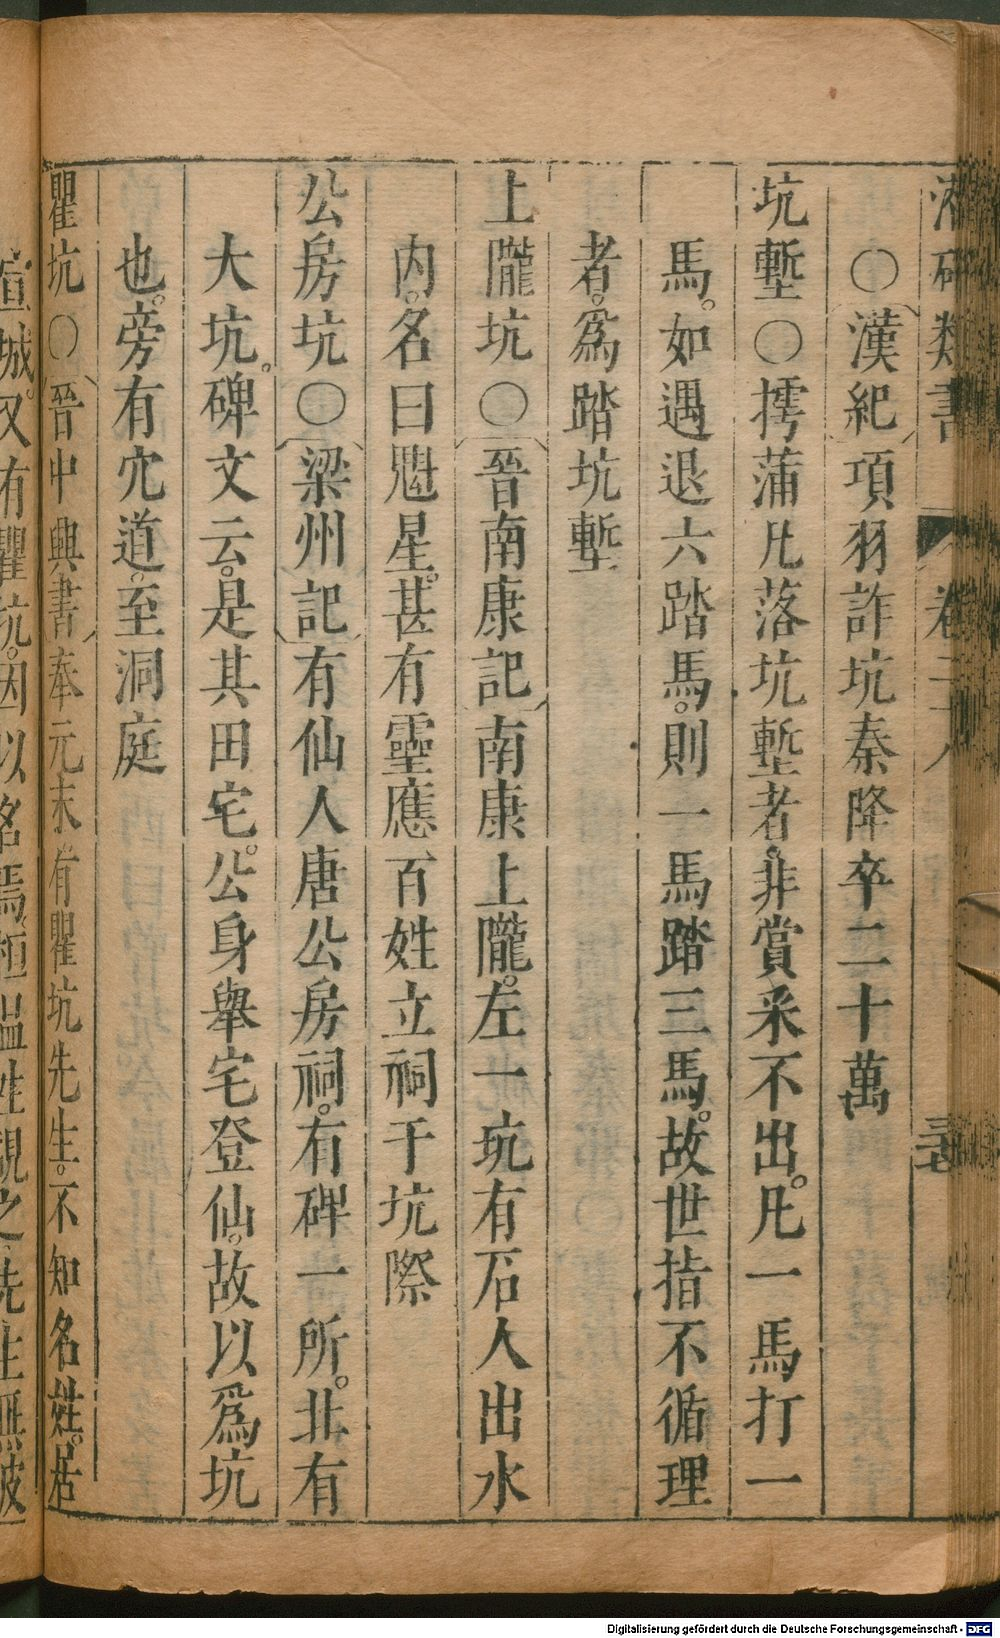 類書 卷二十八
○漢紀項羽詐坑秦降卒二十萬
坑塹○摴蒲凡落坑塹者。非賞采不出。凡一馬打一
馬。如遇退六踏馬。則一馬踏三馬。故世指不循理
者。爲踏坑塹
上隴坑○晉南康記南康上隴。左一坑有石人出水
内。名曰魁星。甚有靈應、百姓立祠于坑際
公房坑○梁州記有仙人唐公房祠。有碑一所。北有
大坑。碑文云。是其田宅。公身舉宅登仙。故以爲坑
也。旁有穴道。至洞庭
瞿坑○晉中興書奉元末。有瞿坑先生。不知名姓。居
宣城。又有瞿坑。因以名焉。桓温往視之先生無被
Digitalisierung gefördert durch die Deutsche Forschungsgemeinschaft - DFG